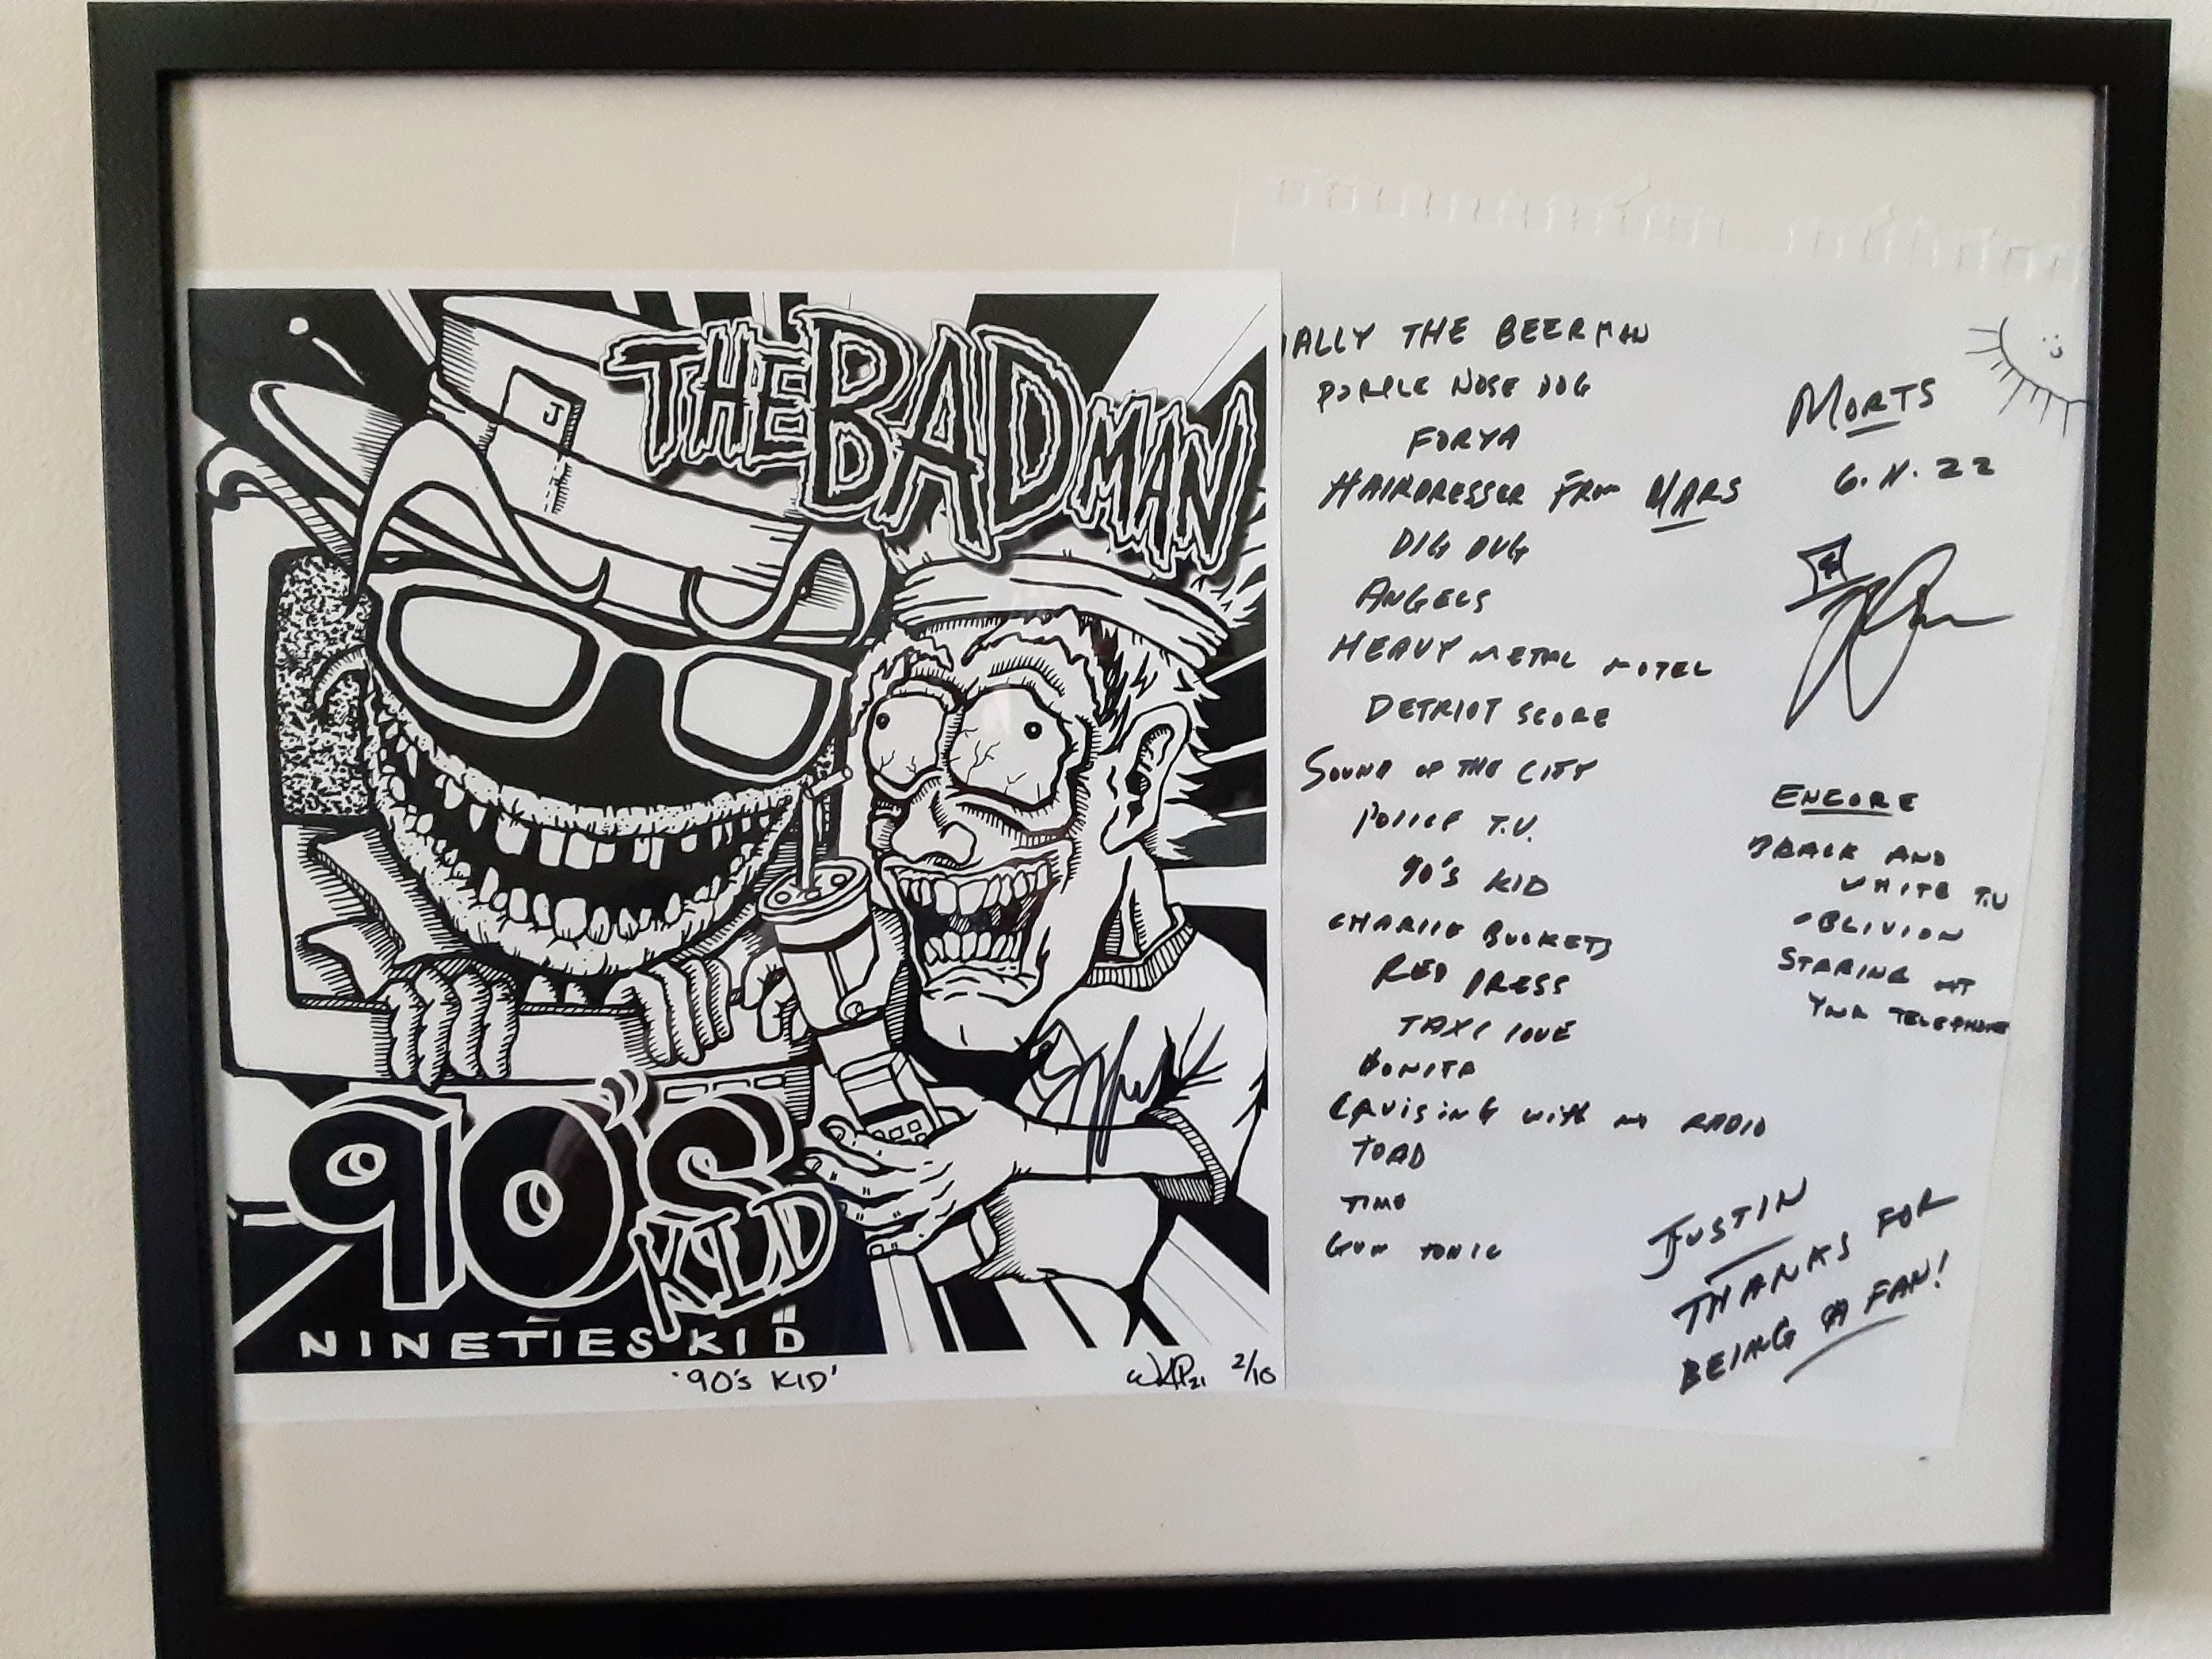 THE BAD MAN
J
90'S
KID
NINETIES KID
'90's KID'
WKP21 2/10
ALLY THE BEERMAN
PURPLE NOSE DOG
FORYA
HAIRDRESSER FROM MARS
DIG DUG
ANGELS
HEAVY METAL MOTEL
DETRIOT SCORE
SOUND OF THE CITY
POLICE T.V.
90'S KID
CHARLIE BUCKETS
RED DRESS
TAXI LOVE
BONITA
CRUISING WITH NO RADIO
TOAD
TIME
GUN TONIC
MORTS
6.11.22
ENCORE
BLACK AND
WHITE T.V
OBLIVION
STARING AT
YOUR TELEPHONE
JUSTIN
THANKS FOR
BEING A FAN!